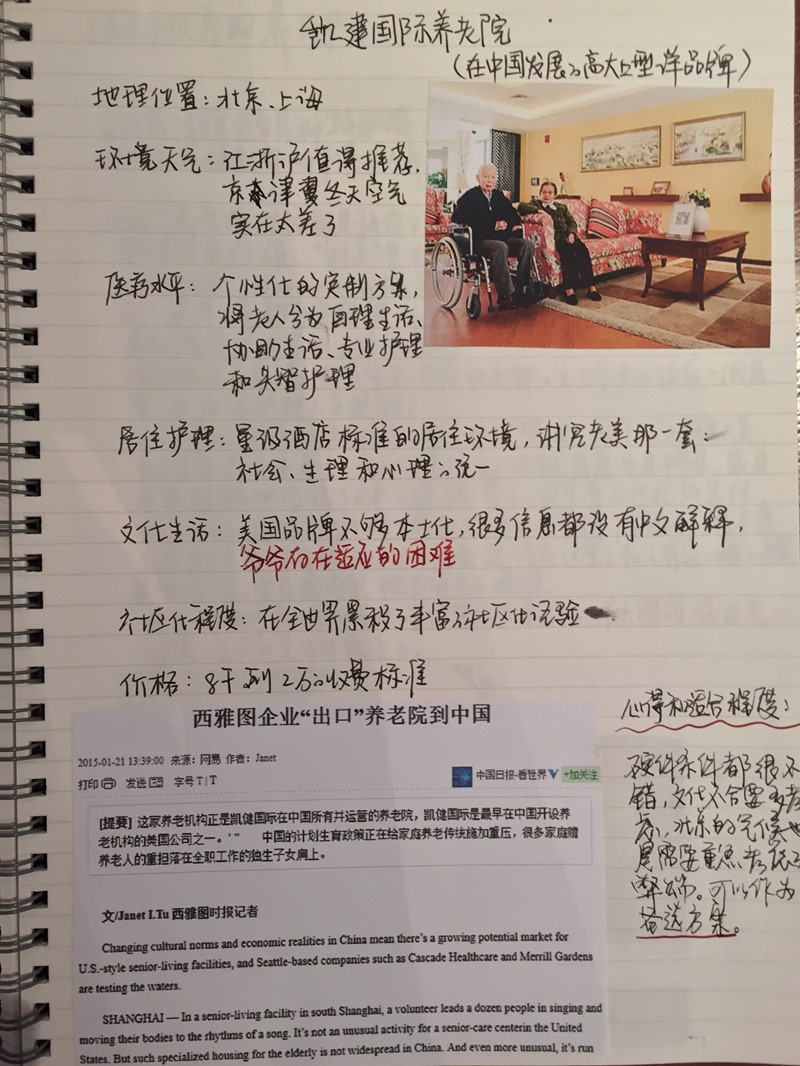 凯健国际养老院
(在中国发展的高大上型洋品牌)
地理位置：北京、上海
环境天气：江浙沪值得推荐，
京津冀冬天空气
实在太差了
医疗水平：个性化的定制方案，
将老人分为自理生活、
协助生活、专业护理
和失智护理
居住护理：星级酒店标准的居住环境，讲究老美那一套：
社会、生理和心理的统一
文化生活：美国品牌不够本土化，很多信息都没有中文解释，
爷爷存在适应的困难
社区化程度：在全世界累积了丰富的社区化经验
价格：8千到2万的收费标准
西雅图企业“出口”养老院到中国
2015-01-21 13:39:00 来源：网易 作者：Janet
打印 发送 字号 T | T
中国日报-看世界 V +加关注
[提要] 这家养老机构正是凯健国际在中国所有并运营的养老院，凯健国际是最早在中国开设养
老机构的美国公司之一。’” 中国的计划生育政策正在给家庭养老传统施加重压，很多家庭赡
养老人的重担落在全职工作的独生子女肩上。
文/Janet I.Tu 西雅图时报记者
Changing cultural norms and economic realities in China mean there's a growing potential market for
U.S.-style senior-living facilities, and Seattle-based companies such as Cascade Healthcare and Merrill Gardens
are testing the waters.
SHANGHAI — In a senior-living facility in south Shanghai, a volunteer leads a dozen people in singing and
moving their bodies to the rhythms of a song. It's not an unusual activity for a senior-care centerin the United
States. But such specialized housing for the elderly is not widespread in China. And even more unusual, it's run
心得和适合程度：
硬件条件都很不
错，文化不合要多考
虑，北京的气候也
是需要重点考虑的
弊端。可以作为
备选方案。